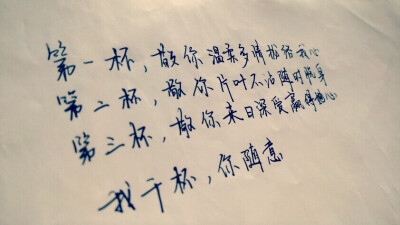 第一杯，敬你温柔多情扰稳我心
第二杯，敬你片叶不沾随时脱身
第三杯，敬你来日深爱赢得他心
我干杯，你随意